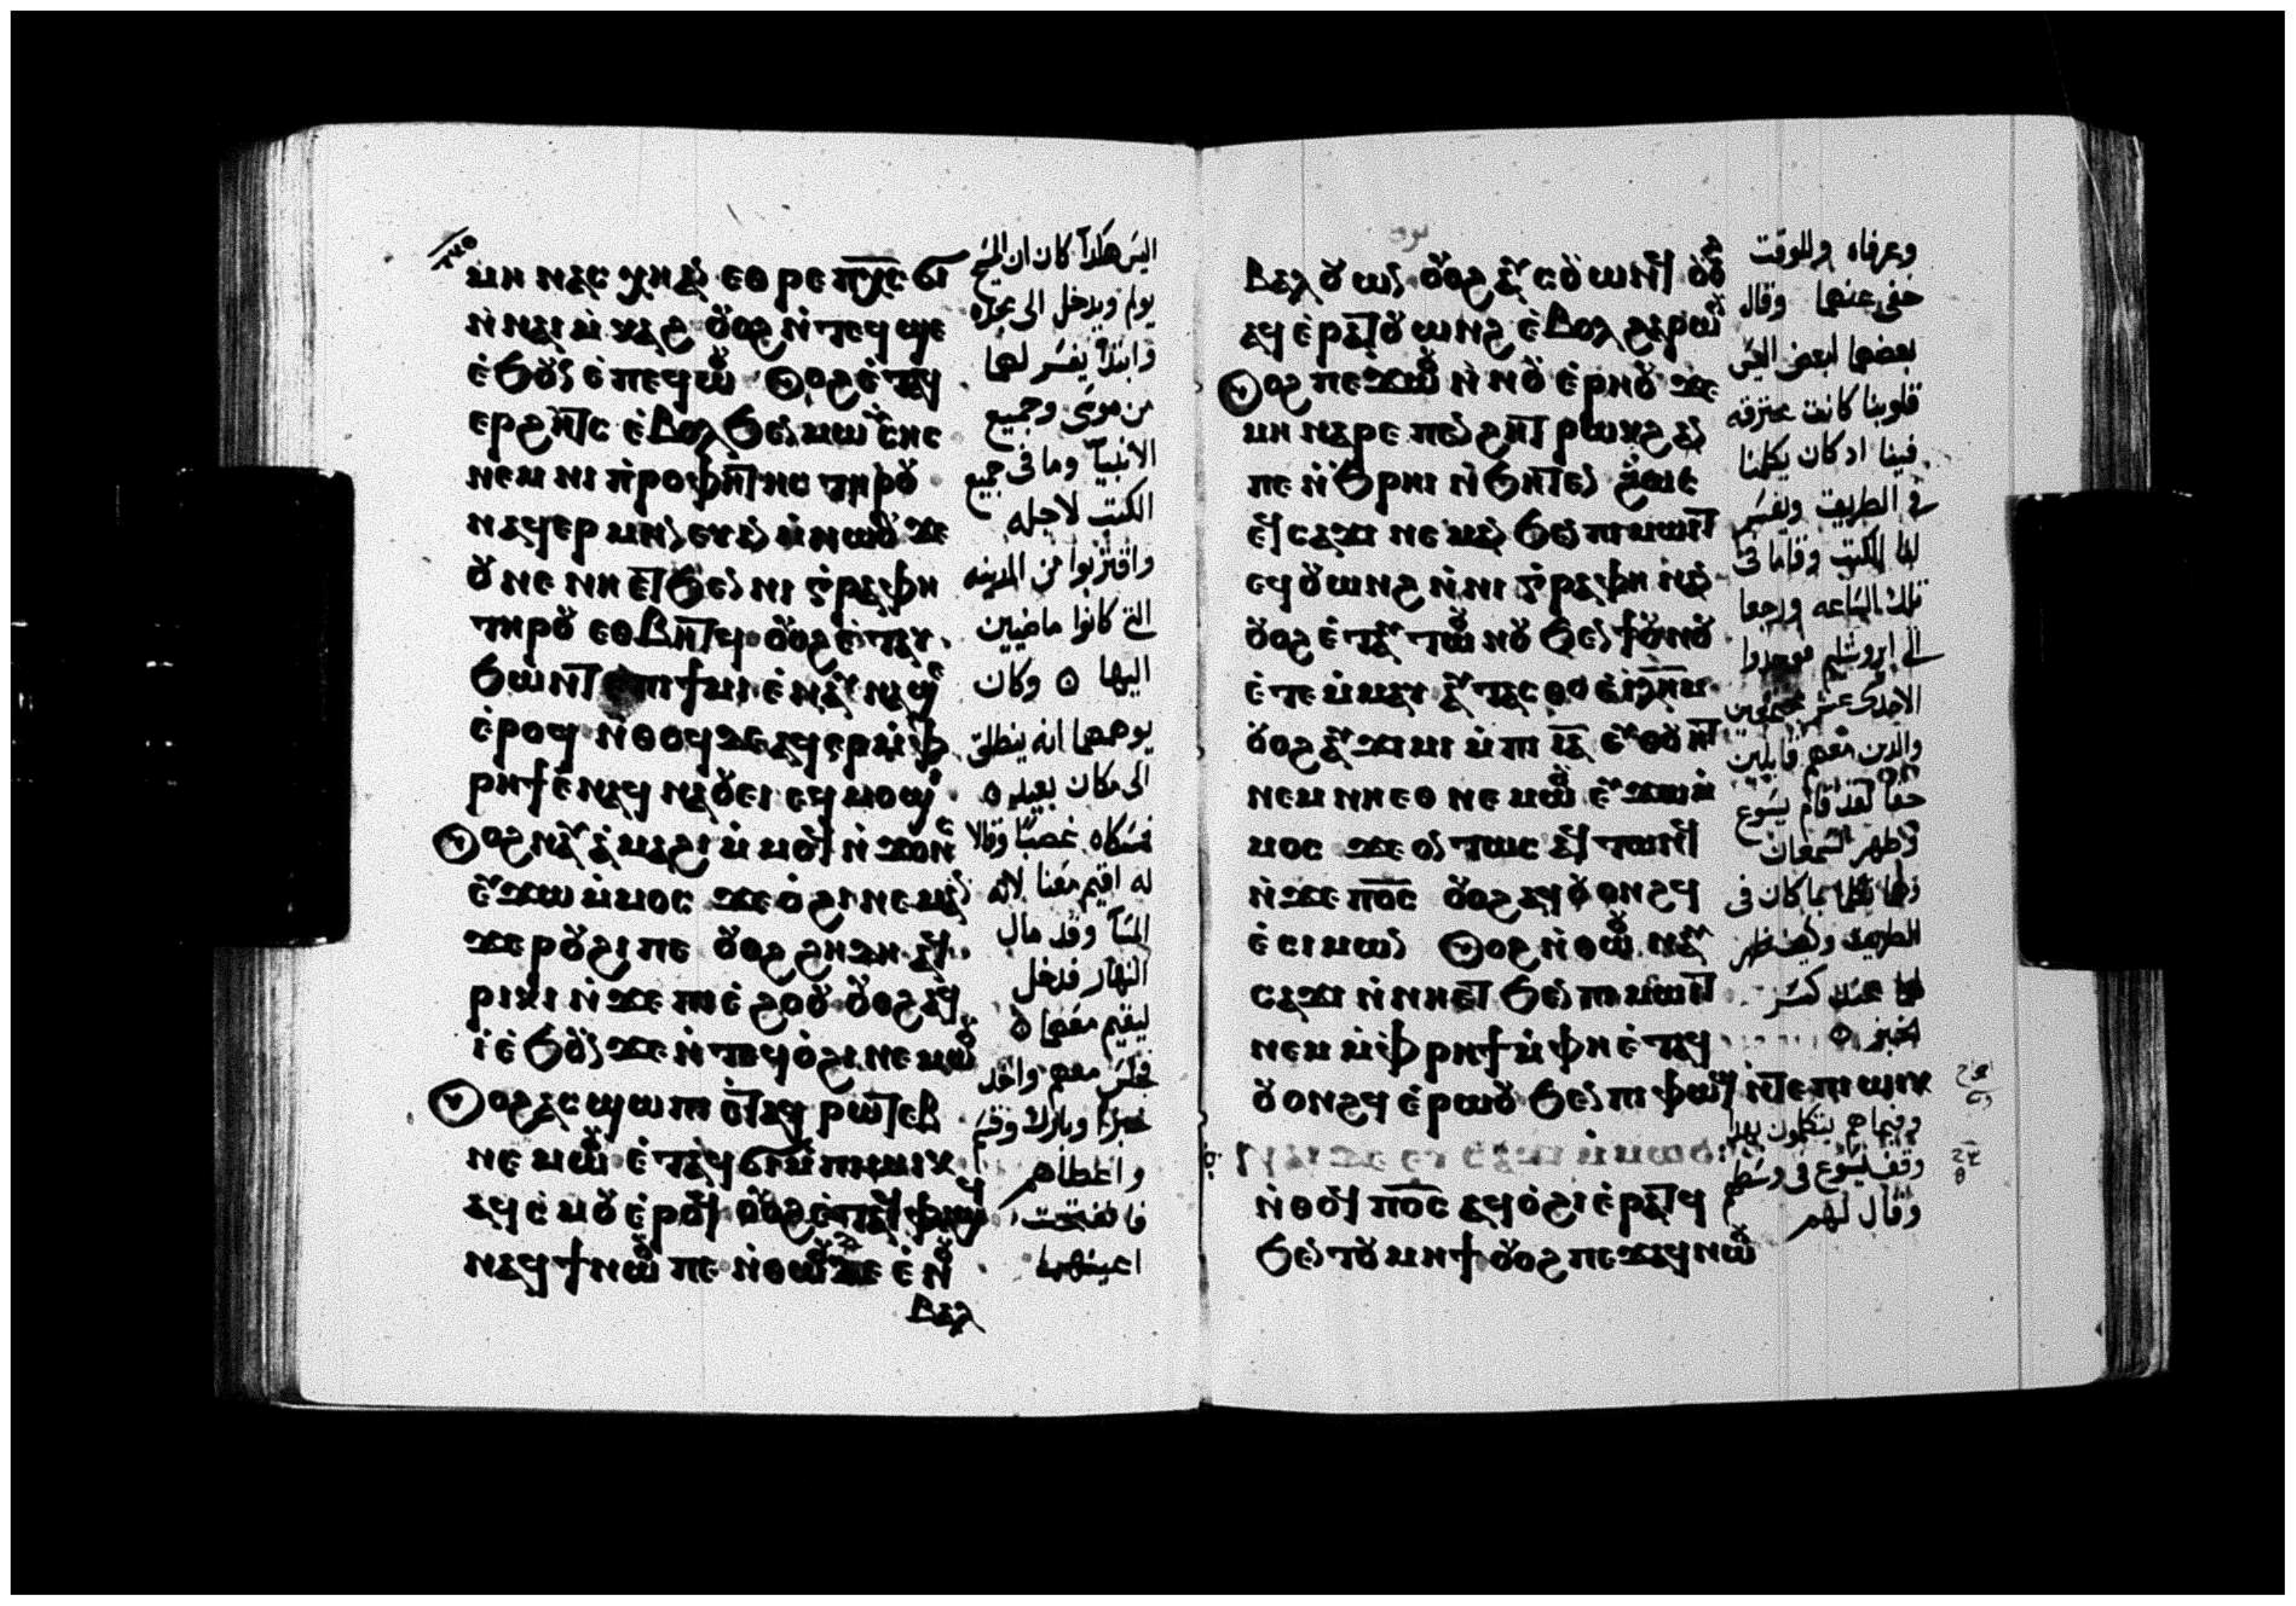 ⲙⲏ ⲛⲁⲥ ⲙⲏⲁⲛ ⲉⲑⲣⲉ ⲡⲭⲥ ϭⲓ
ⲛ̇ⲛⲁⲓ ⲙ̇ⲕⲁϩ ⲟⲩⲟϩ ⲛ̇ⲧⲉϥϣⲉ
ⲉ̇ϧⲟⲩⲛ ⲉ̇ⲡⲉϥⲱⲟⲩ ⲟⲩⲟϩ ⲉ̇ⲧⲁϥ
ⲉⲣϩⲏⲧⲥ ⲉ̇ⲃⲟⲗ ϧⲉⲛ ⲙⲱⲥⲏⲥ
ⲛⲉⲙ ⲛⲓ ⲡ̇ⲣⲟⲫⲏⲧⲏⲥ ⲧⲏⲣⲟⲩ
ⲛⲁϥⲉⲣⲙⲏⲛⲉⲩⲓⲛ ⲙ̇ⲙⲱⲟⲩ ϫⲉ
ⲟⲩ ⲛⲉ ⲛⲏ ⲉⲧϧⲉⲛ ⲛⲓ ⲅ̇ⲣⲁⲫⲏ
ⲧⲏⲣⲟⲩ ⲉⲑⲃⲏⲧϥ ⲟⲩⲟϩ ⲉ̇ⲧⲁⲩ
ϧⲱⲛⲧ ⲉ̇ⲡⲓϯⲙⲓ ⲉ̇ⲛⲁⲩⲛⲁϣⲉ
ⲉ̇ⲣⲟϥ ⲛ̇ⲑⲟϥ ϫⲉ ⲁϥⲉⲣ ⲙ̇ⲫ
ⲣⲏϯ ⲉ̇ⲛⲁϥ ⲛⲁⲟⲩⲉⲓ ⲉϥⲙⲟϣⲓ
ⲟⲩⲟϩ ⲛⲁⲩⲁ̇ⲙⲁϩⲓ ⲙ̇ⲙⲟϥ ⲛ̇ϫⲟⲛⲥ
ⲉⲩϫⲱ ⲙ̇ⲙⲟⲥ ϫⲉ ⲟ̇ϩⲓ ⲛⲉⲙⲁⲛ
ϫⲉ ⲣⲟⲩϩⲓ ⲡⲉ ⲟⲩⲟϩ ϩⲏϫⲏ ⲁϥ
ⲣⲓⲕⲓ ⲛ̇ϫⲉ ⲡⲓⲉ̇ϩⲟⲟⲩ ⲟⲩⲟϩ ⲁϥ
ⲓ̇ ⲉ̇ϧⲟⲩⲛ ϫⲉ ⲛ̇ⲧⲉϥⲟ̇ϩⲓ ⲛⲉⲙⲱⲟⲩ
ⲟⲩⲟϩ ⲁⲥϣⲱⲡⲓ ⲉ̇ⲧⲁϥ ⲣⲱⲧⲉⲃ
ⲛⲉⲙⲱⲟⲩ ⲉ̇ⲧⲁϥϭⲓ ⲙ̇ⲡⲓⲱⲓⲕ
ⲁϥⲥ̇ⲙⲟⲩ ⲉ̇ⲣⲟϥ ⲟⲩⲟϩ ⲉ̇ⲧⲁϥⲫⲁϣϥ
ⲛⲁϥϯ ⲛⲱⲟⲩ ⲡⲉ ⲛ̇ⲑⲱⲟⲩ ϫⲉ ⲉ̇ⲛⲟⲩ
ⲃⲁⲗ
اليس هكدا كان ان المسيح
يولم ويدخل الى مجده
وابتدا يفسر لهما
من موسى وجميع
الانبيا وما في جميع
الكتب لاجله
واقتربوا من المدينه
التي كانوا ماضيين
اليها وكان
يوهمهما انه ينطلق
الى مكان بعيد
فمسكاه غصبا وقالا
له اقيم معنا لانه
المسا وقد مال
النهار فدخل
ليقيم معهما
فجلس معهم واخد
خبزا وبارك وقسم
واعطاهم
فانفتحت
اعينهما
ⲃⲁⲗ ⲟⲩⲱⲛ ⲟⲩⲟϩ ⲁⲩⲥⲟⲩⲱⲛϥ ⲟⲩⲟϩ
ⲁϥⲉ̇ⲣⲁⲧⲟⲩⲱⲛϩ ⲉ̇ⲃⲟⲗ ϩⲁⲣⲱⲟⲩ
ⲟⲩⲟϩ ⲡⲉϫⲱⲟⲩ ⲛ̇ⲛⲟⲩⲉ̇ⲣⲏⲟⲩ ϫⲉ
ⲙⲏ ⲛⲁⲣⲉ ⲡⲉⲛϩⲏⲧ ⲣⲱⲕϩ ⲁⲛ
ⲡⲉ ⲛ̇ϧⲣⲏⲓ ⲛ̇ϧⲏⲧⲉⲛ ϩⲱⲥ
ⲉϥⲥⲁϫⲓ ⲛⲉⲙⲁⲛ ϧⲉⲛ ⲡⲓⲙⲱⲓⲧ
ⲉϥⲟⲩⲱⲛϩ ⲛ̇ⲛⲓ ⲅ̇ⲣⲁⲫⲏ ⲛⲁⲛ
ⲟⲩⲟϩ ⲉ̇ⲧⲁⲩⲧⲱⲟⲩⲛⲟⲩ ϧⲉⲛ ϯⲟⲩⲛⲟⲩ
ⲉ̇ⲧⲉ ⲙ̇ⲙⲁⲩ ⲁⲩⲧⲁⲥⲑⲟ ⲉ̇ⲓⲗⲏⲙ
ⲟⲩⲟϩ ⲁⲩϫⲓⲙⲓ ⲙ̇ⲡⲓ ⲓ̅ⲁ̅ ⲉⲩⲑⲟⲩⲏⲧ
ⲛⲉⲙ ⲛⲏ ⲉⲑⲛⲉⲙⲱⲟⲩ ⲉⲩϫⲱ ⲙ̇
ⲙⲟⲥ ϫⲉ ⲟⲛⲧⲱⲥ ⲁϥⲧⲱⲛϥ
ⲛ̇ϫⲉ ⲡⲟ̅ⲥ̅ ⲟⲩⲟϩ ⲁϥⲟⲩⲟⲛϩϥ
ⲉ̇ⲥⲓⲙⲱⲛ ⲟⲩⲟϩ ⲛ̇ⲑⲱⲟⲩ ⲛⲁⲩ
ⲥⲁϫⲓ ⲛ̇ⲛⲏ ⲉⲧ ϧⲉⲛ ⲡⲓⲙⲱⲓⲧ
ⲛⲉⲙ ⲙ̇ⲫⲣⲏϯ ⲙ̇ⲫⲏ ⲉ̇ⲧⲁϥ
ⲟⲩⲟⲛϩϥ ⲉ̇ⲣⲱⲟⲩ ϧⲉⲛ ⲡⲓⲫⲱϣ ⲛ̇ⲧⲉ ⲡⲓⲱⲓⲕ
ⲛ̇ⲑⲟϥ ⲡⲟ̅ⲥ̅ ⲁϥⲟ̇ϩⲓ ⲉ̇ⲣⲁⲧϥ
ϧⲉⲛ ⲧⲟⲩⲙⲏϯ ⲟⲩⲟϩ ⲡⲉϫⲁϥ ⲛⲱⲟⲩ
وعرفاه وللوقت
خفى عنهما وقال
بعضهما لبعض اليس
قلوبنا كانت محترقه
فينا اد كان يكلمنا
في الطريق ويفسر
لنا الكتب وقاما في
تلك الساعه ورجعا
الى ايروشليم فوجدوا
الاحدى عشر مجتمعين
والدين معهم قايلين
حقا لقد قام يسوع
وظهر لسمعان
وهما تكلما بما كان في
الطريق وكيف ظهر
لهما عند كسر
الخبز
وفيما هم يتكلمون بهدا
وقف يسوع في وسطهم
وقال لهم